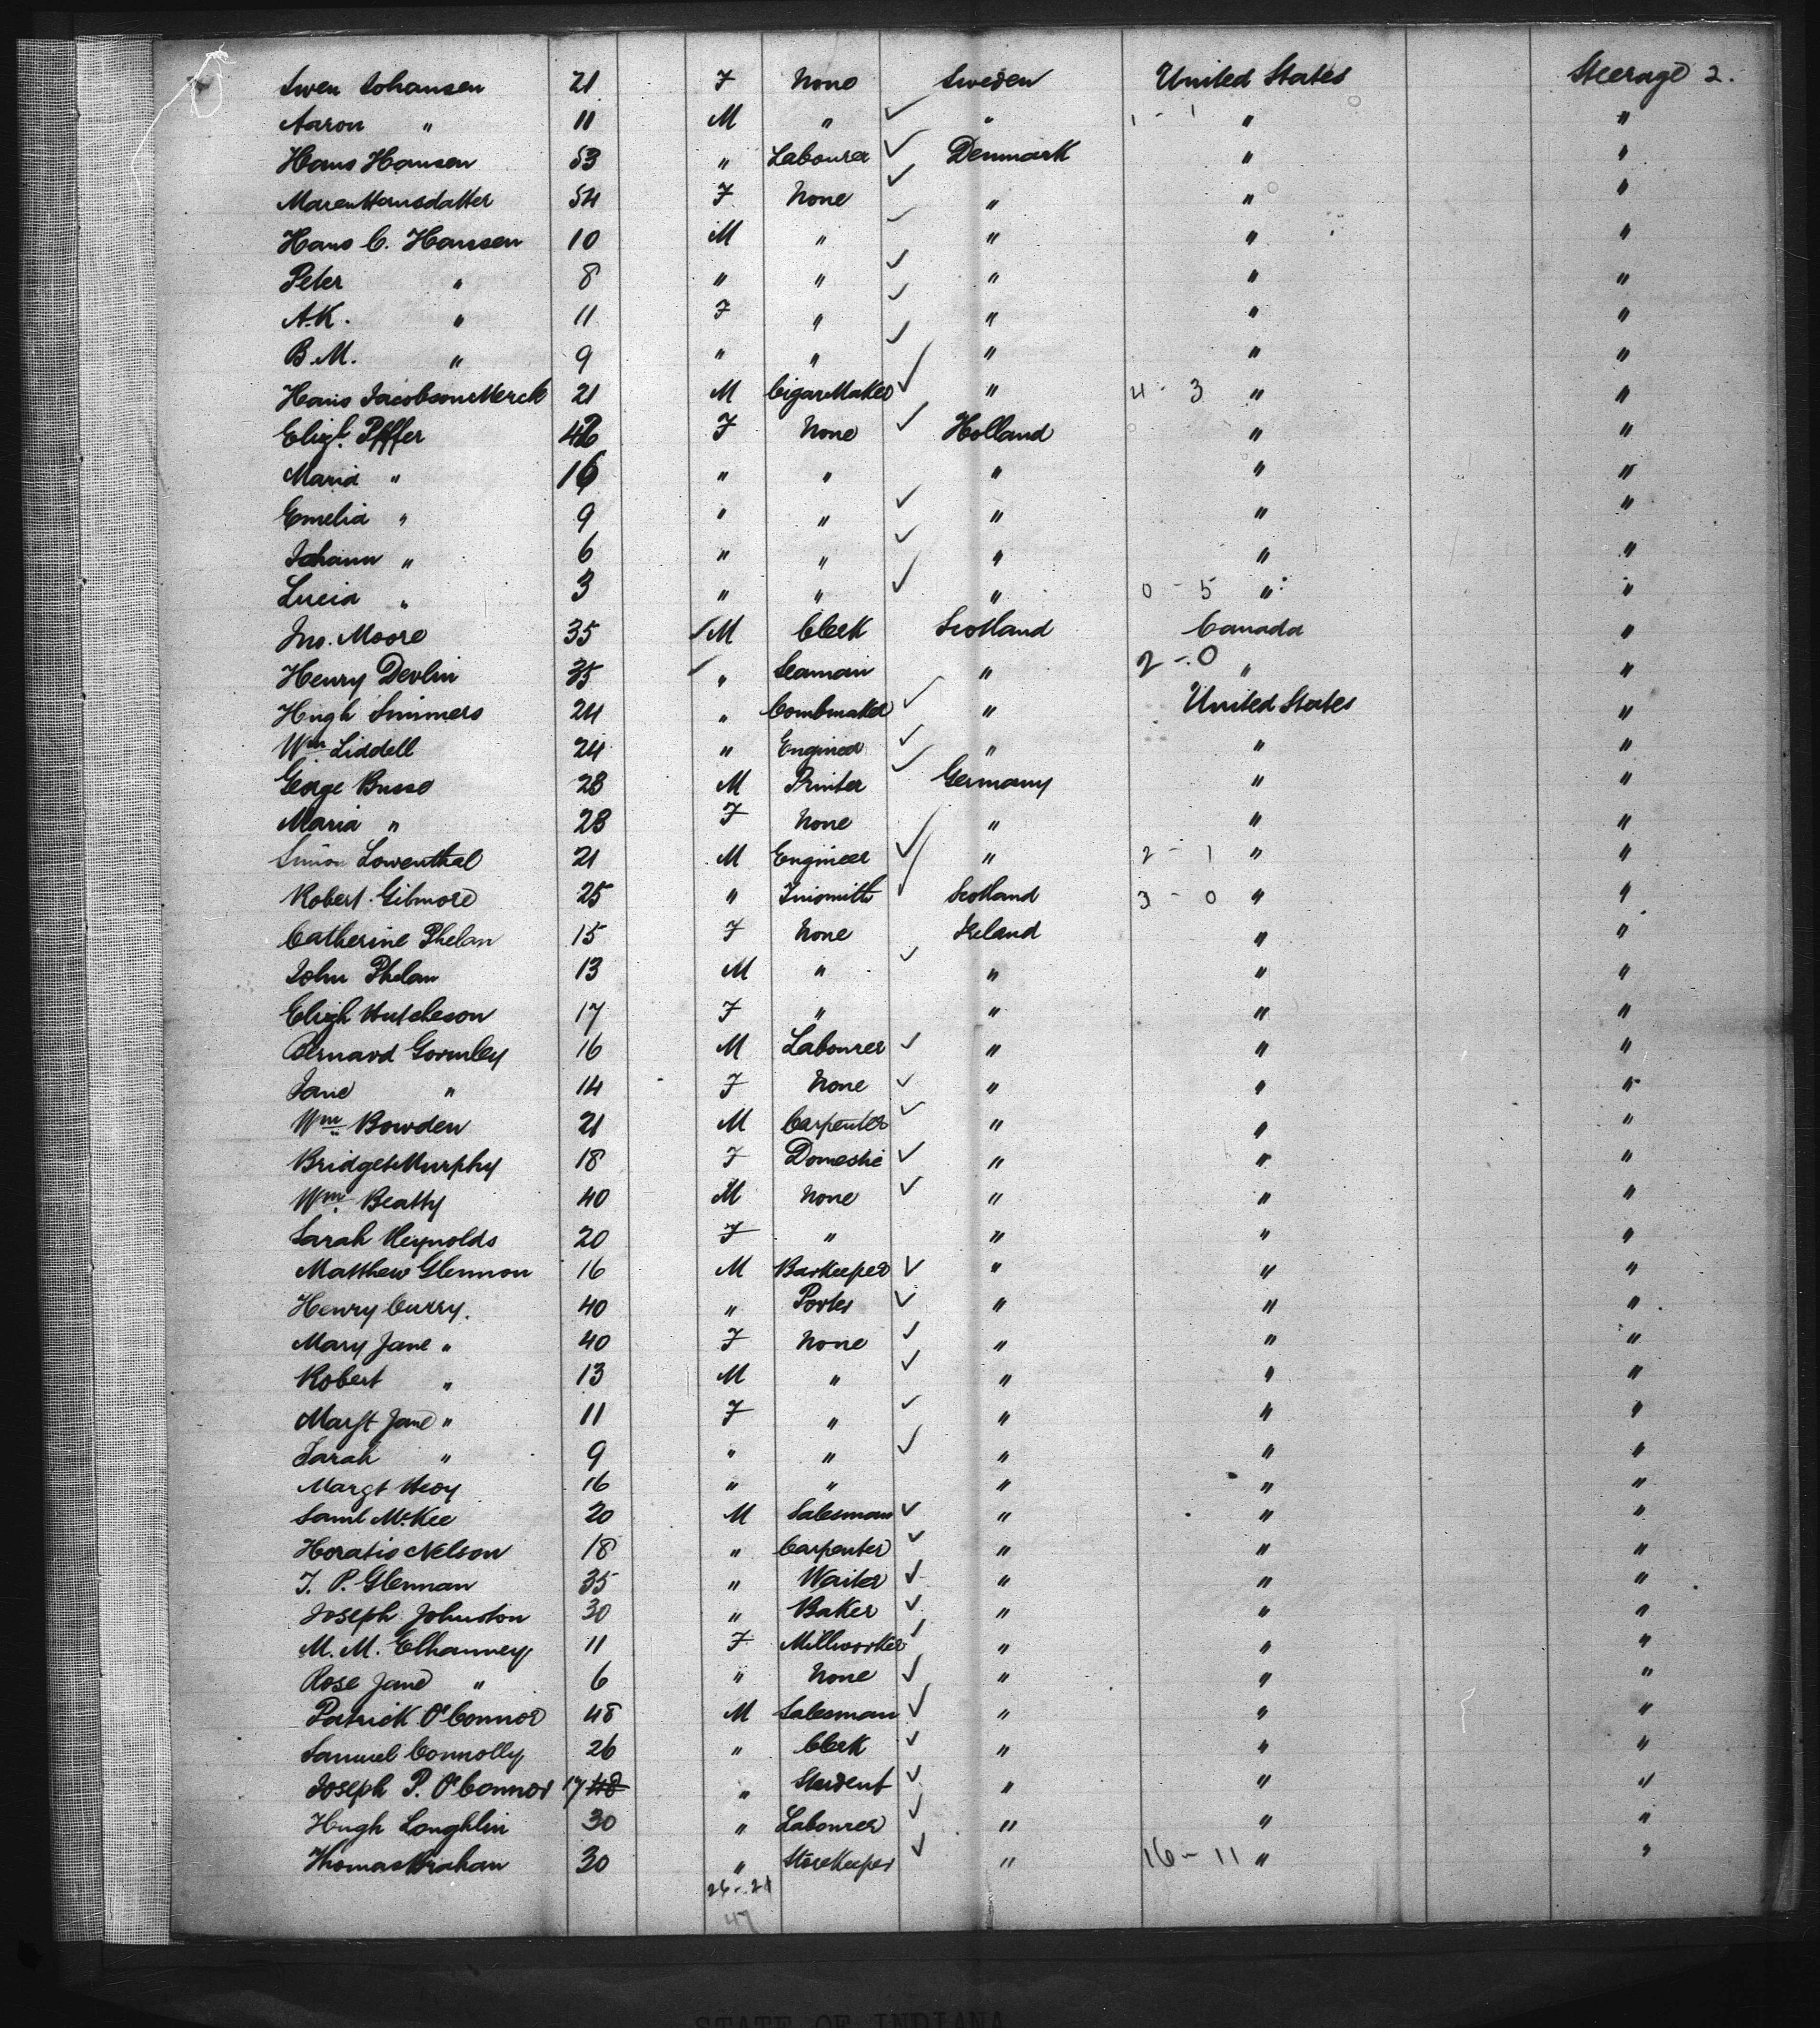 Swen Johansen 21 F None Sweden United States Steerage 2.
Aaron " 11 M " " 1 - 1 " "
Hans Hansen 53 " Labourer Denmark " "
Maren Hansdatter 54 F None " " "
Hans C. Hansen 10 M " " " "
Peter " 8 " " " " "
A.K. " 11 F " " " "
B.M. " 9 " " " " "
Hans Jacobson Merck 21 M CigarMaker " 4 - 3 " "
Elizt. Pfffer 42 F None Holland " "
Maria " 16 " " " " "
Emelia " 9 " " " " "
Johann " 6 " " " " "
Lucia " 3 " " " 0 - 5 " "
Jno. Moore 35 M Clerk Scotland Canada "
Henry Devlin 35 " Seaman " 2 - 0 " "
Hugh Simmers 24 " Combmaker " United States "
Wm Liddell 24 " Engineer " " "
George Busse 28 M Printer Germany " "
Maria " 28 F None " " "
Simon Lowenthal 21 M Engineer " 2 - 1 " "
Robert Gilmore 25 " Tinsmith Scotland 3 - 0 " "
Catherine Phelan 15 F None Ireland " "
John Phelan 13 M " " " "
Elizh Hutcheson 17 F " " " "
Bernard Gormley 16 M Labourer " " "
Jane " 14 F None " " "
Wm Bowden 21 M Carpenter " " "
Bridget Murphy 18 F Domestic " " "
Wm. Beatty 40 M None " " "
Sarah Reynolds 20 F " " " "
Matthew Glennon 16 M Barkeeper " " "
Henry Curry. 40 " Porter " " "
Mary Jane " 40 F None " " "
Robert " 13 M " " " "
Margt Jane " 11 F " " " "
Sarah " 9 " " " " "
Margt Heoy 16 " " " " "
Saml McKee 20 M Salesman " " "
Horatio Nelson 18 " Carpenter " " "
T. P. Glennan 35 " Waiter " " "
Joseph Johnston 30 " Baker " " "
M. M. Elhanney 11 F Millworker " " "
Rose Jane " 6 " None " " "
Patrick O'Connor 48 M Salesman " " "
Samuel Connolly 26 " Clerk " " "
Joseph P. O'Connor 17 48 " Student " " "
Hugh Loughlin 30 " Labourer " " "
Thomas Brahan 30 " Storekeeper " 16 - 11 " "
26 - 21
47
STATE OF INDIANA